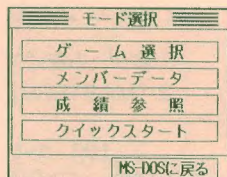 モード選択
ゲーム選択
メンバーデータ
成績参照
クイックスタート
MS-DOSに戻る